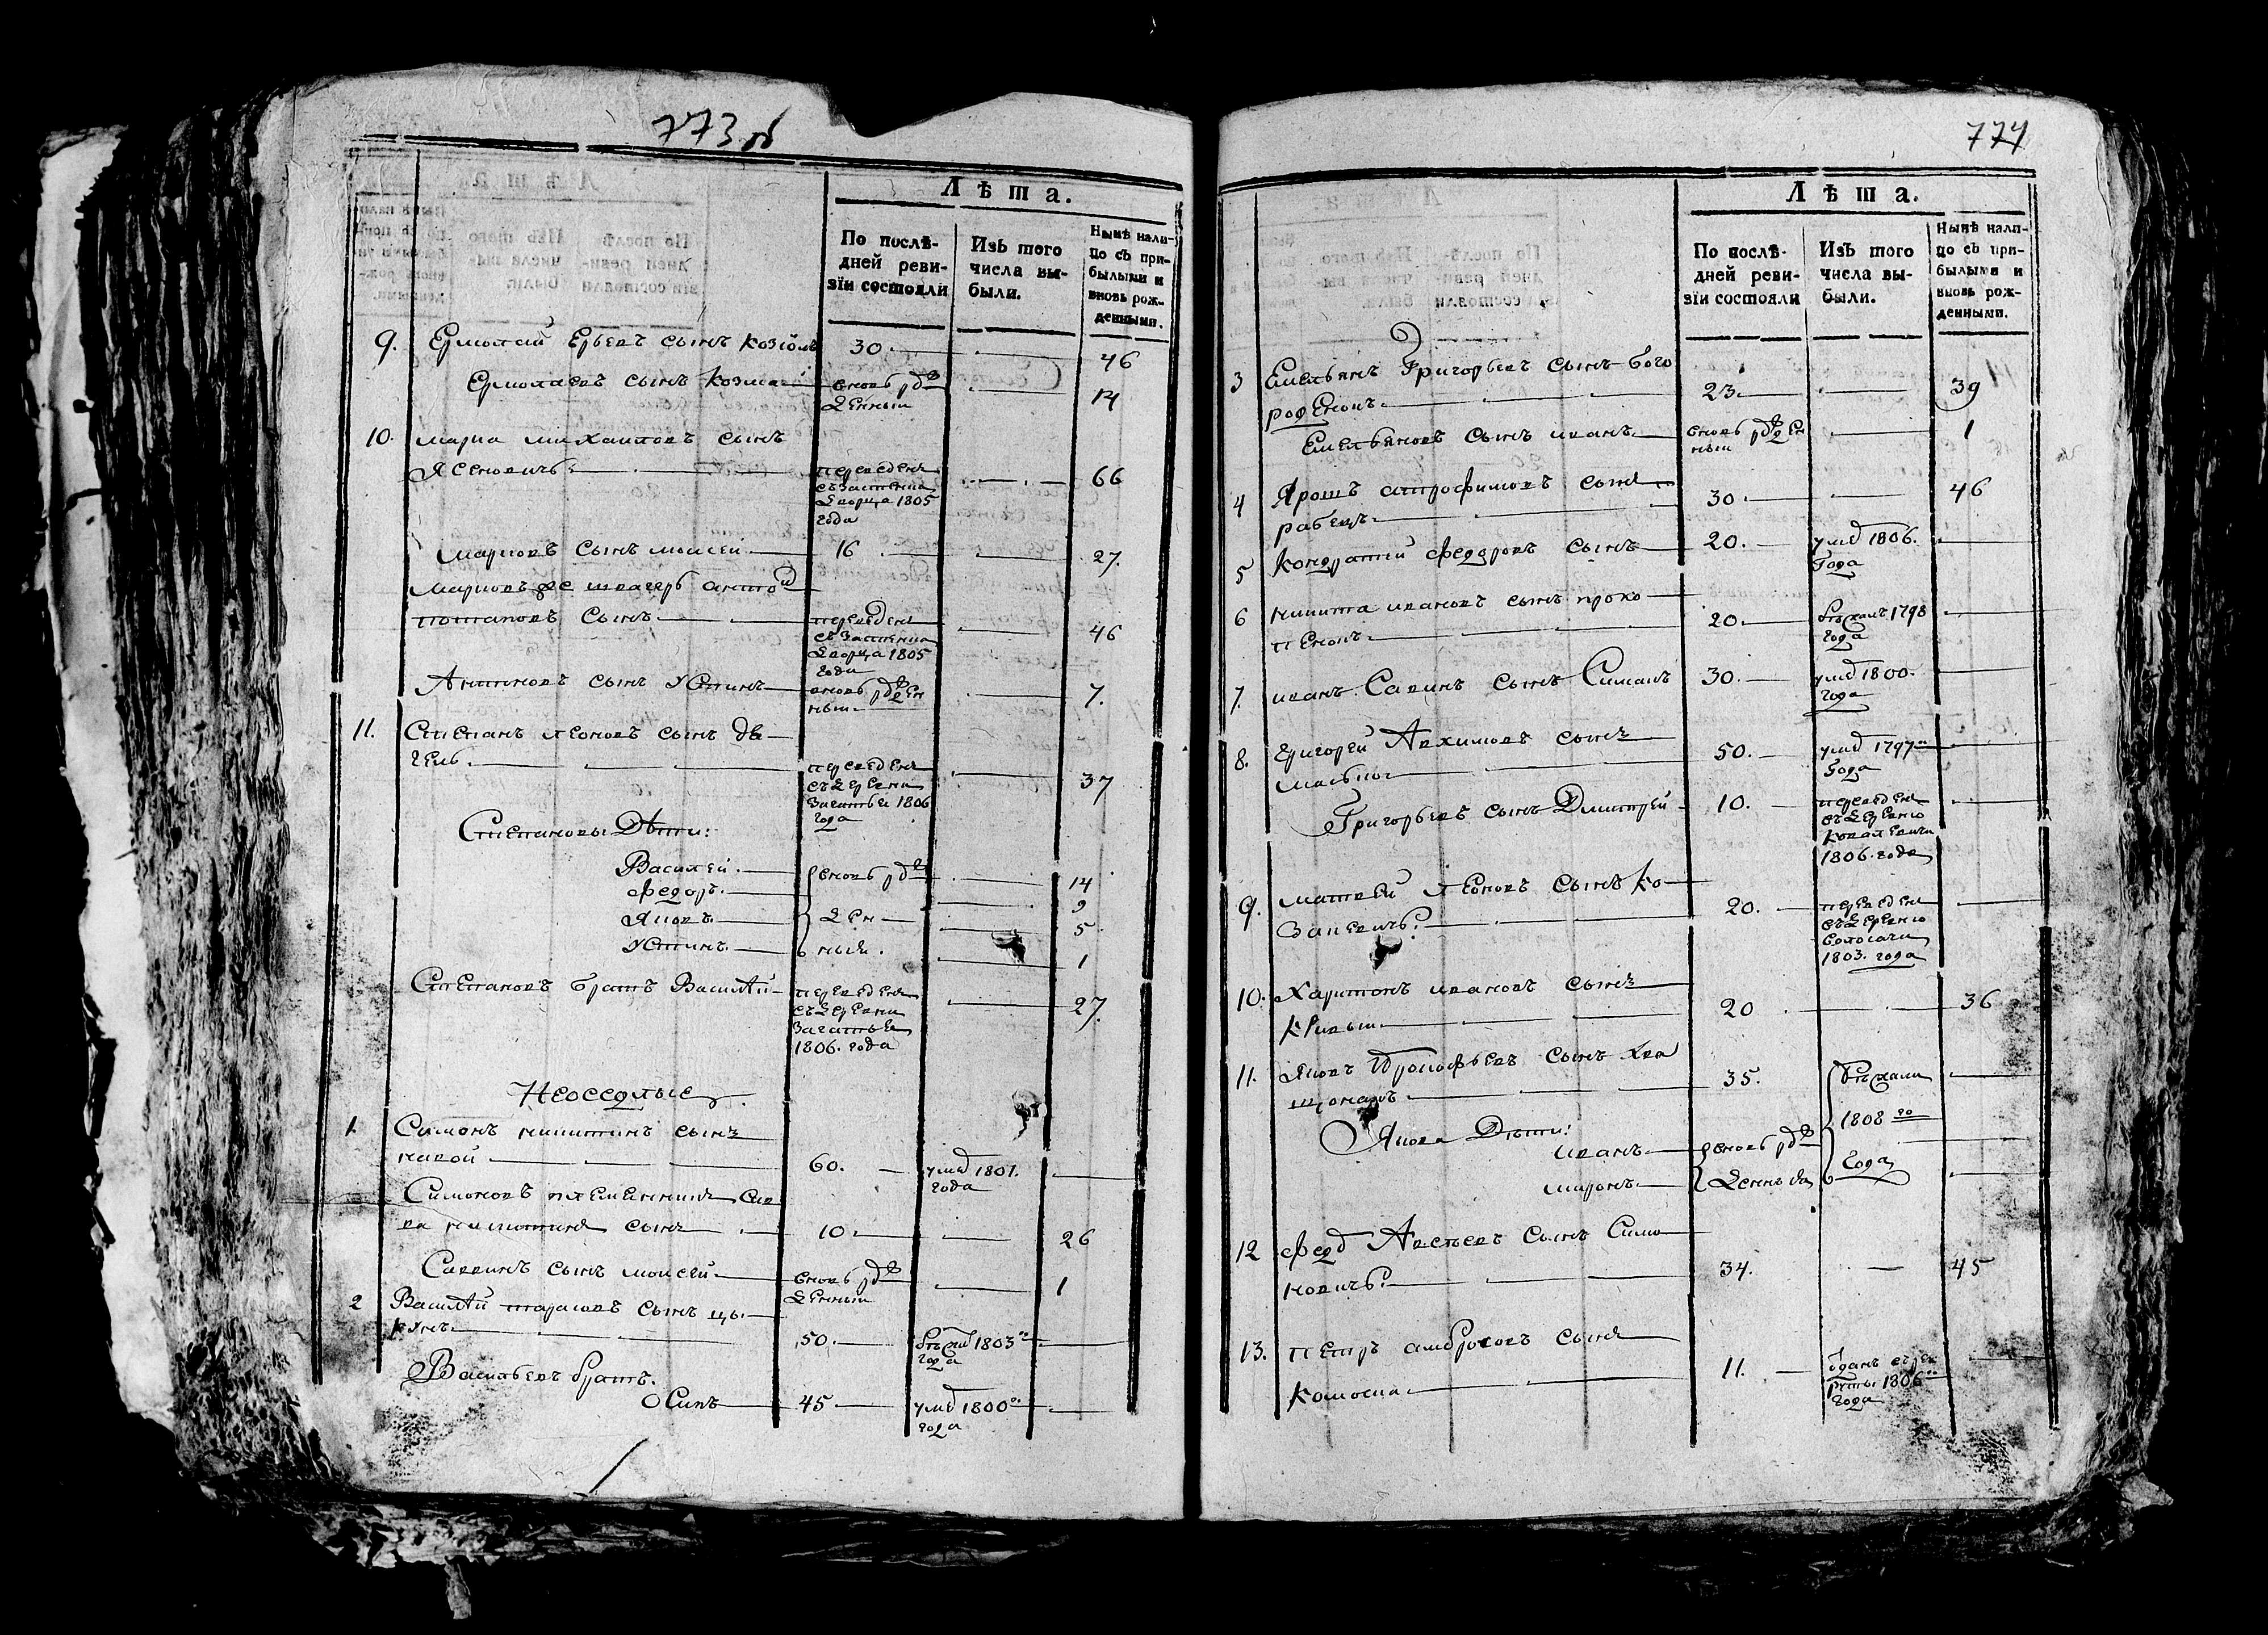 773 об
Лѣта.
По послѣ-
дней реви-
зїи состояли
Изъ того
числа вы-
были.
Нынѣ нали-
цо съ при-
былыми и
вновь рож-
денными.
9. Ермолай Ерьевъ сынъ козіолъ 30 46
Ермолаевъ сынъ козма вновь рож
денный 14
10. марка михаиловъ сынъ
Ясеновичъ переведенъ 66
съ Застенка
Дворца 1805
года
Марковъ сынъ моисей 16 27.
Марковъ же швагеръ антон
потаповъ сынъ переведенъ 46
съ Застенка
Дворца 1805
года
Антоновъ сынъ Устинъ вновь рожден 7.
ный
11. Степанъ леоновъ сынъ де
гель переведенъ 37
съ Деревни
Загатья 1806
года
Степановы Дѣти:
Василей вновь рож 14
Федоръ 9
Яковъ ден 5
Устинъ ныя 1
Степановъ братъ Василій переведенъ 27.
съ Деревни
Загатья
1806. года
Неоседлые
1. Симонъ никитинъ сынъ
60. умер 1801.
года
Симоновъ племянникъ Сав
ва никитинъ сынъ 10 26
Саввинъ сынъ моисей вновь рож 1
денный
2 Василій тарасовъ сынъ цы
кунъ 50. бежал 1803го
года
Васильевъ братъ
Осипъ 45 умер 1800го
года
774
Лѣта.
По послѣ-
дней реви-
зїи состояли
Изъ того
числа вы-
были.
Нынѣ нали-
цо съ при-
былыми и
вновь рож-
денными.
3 Емельянъ Григорьевъ сынъ бого
23. 39
Емельяновъ сынъ иванъ вновь рожден 1
ный
4 Ярошъ атрофимовъ сынъ
рабецъ 30 46
5 Кондратий федоровъ сынъ 20. умер 1806.
Года
6 никита ивановъ сынъ проко
пенокъ 20. бежалъ 1798
года
7. иванъ Савинъ сынъ Симанъ 30. умер 1800.
года
8. григорей Авхимовъ сынъ
малько 50. умер 1797го
Года
Григорьевъ сынъ Дмитрей 10. переведенъ
въ Деревню
Ковалевичи
1806. года
9. матвей леоновъ сынъ ко
20. переведенъ
въ Деревню
Волосачи
1803. года
10. Харитонъ ивановъ сынъ
кривый 20 36
11. Яковъ Прокофьевъ сынъ хва
щонакъ 35. бежали
Якова Дѣти: 1808 го
иванъ вновь рож
миронъ денныя Года
12 федор Авсѣевъ сынъ Симо
новичъ 34. 45
13. петръ амбросовъ сынъ
комоска 11. Года